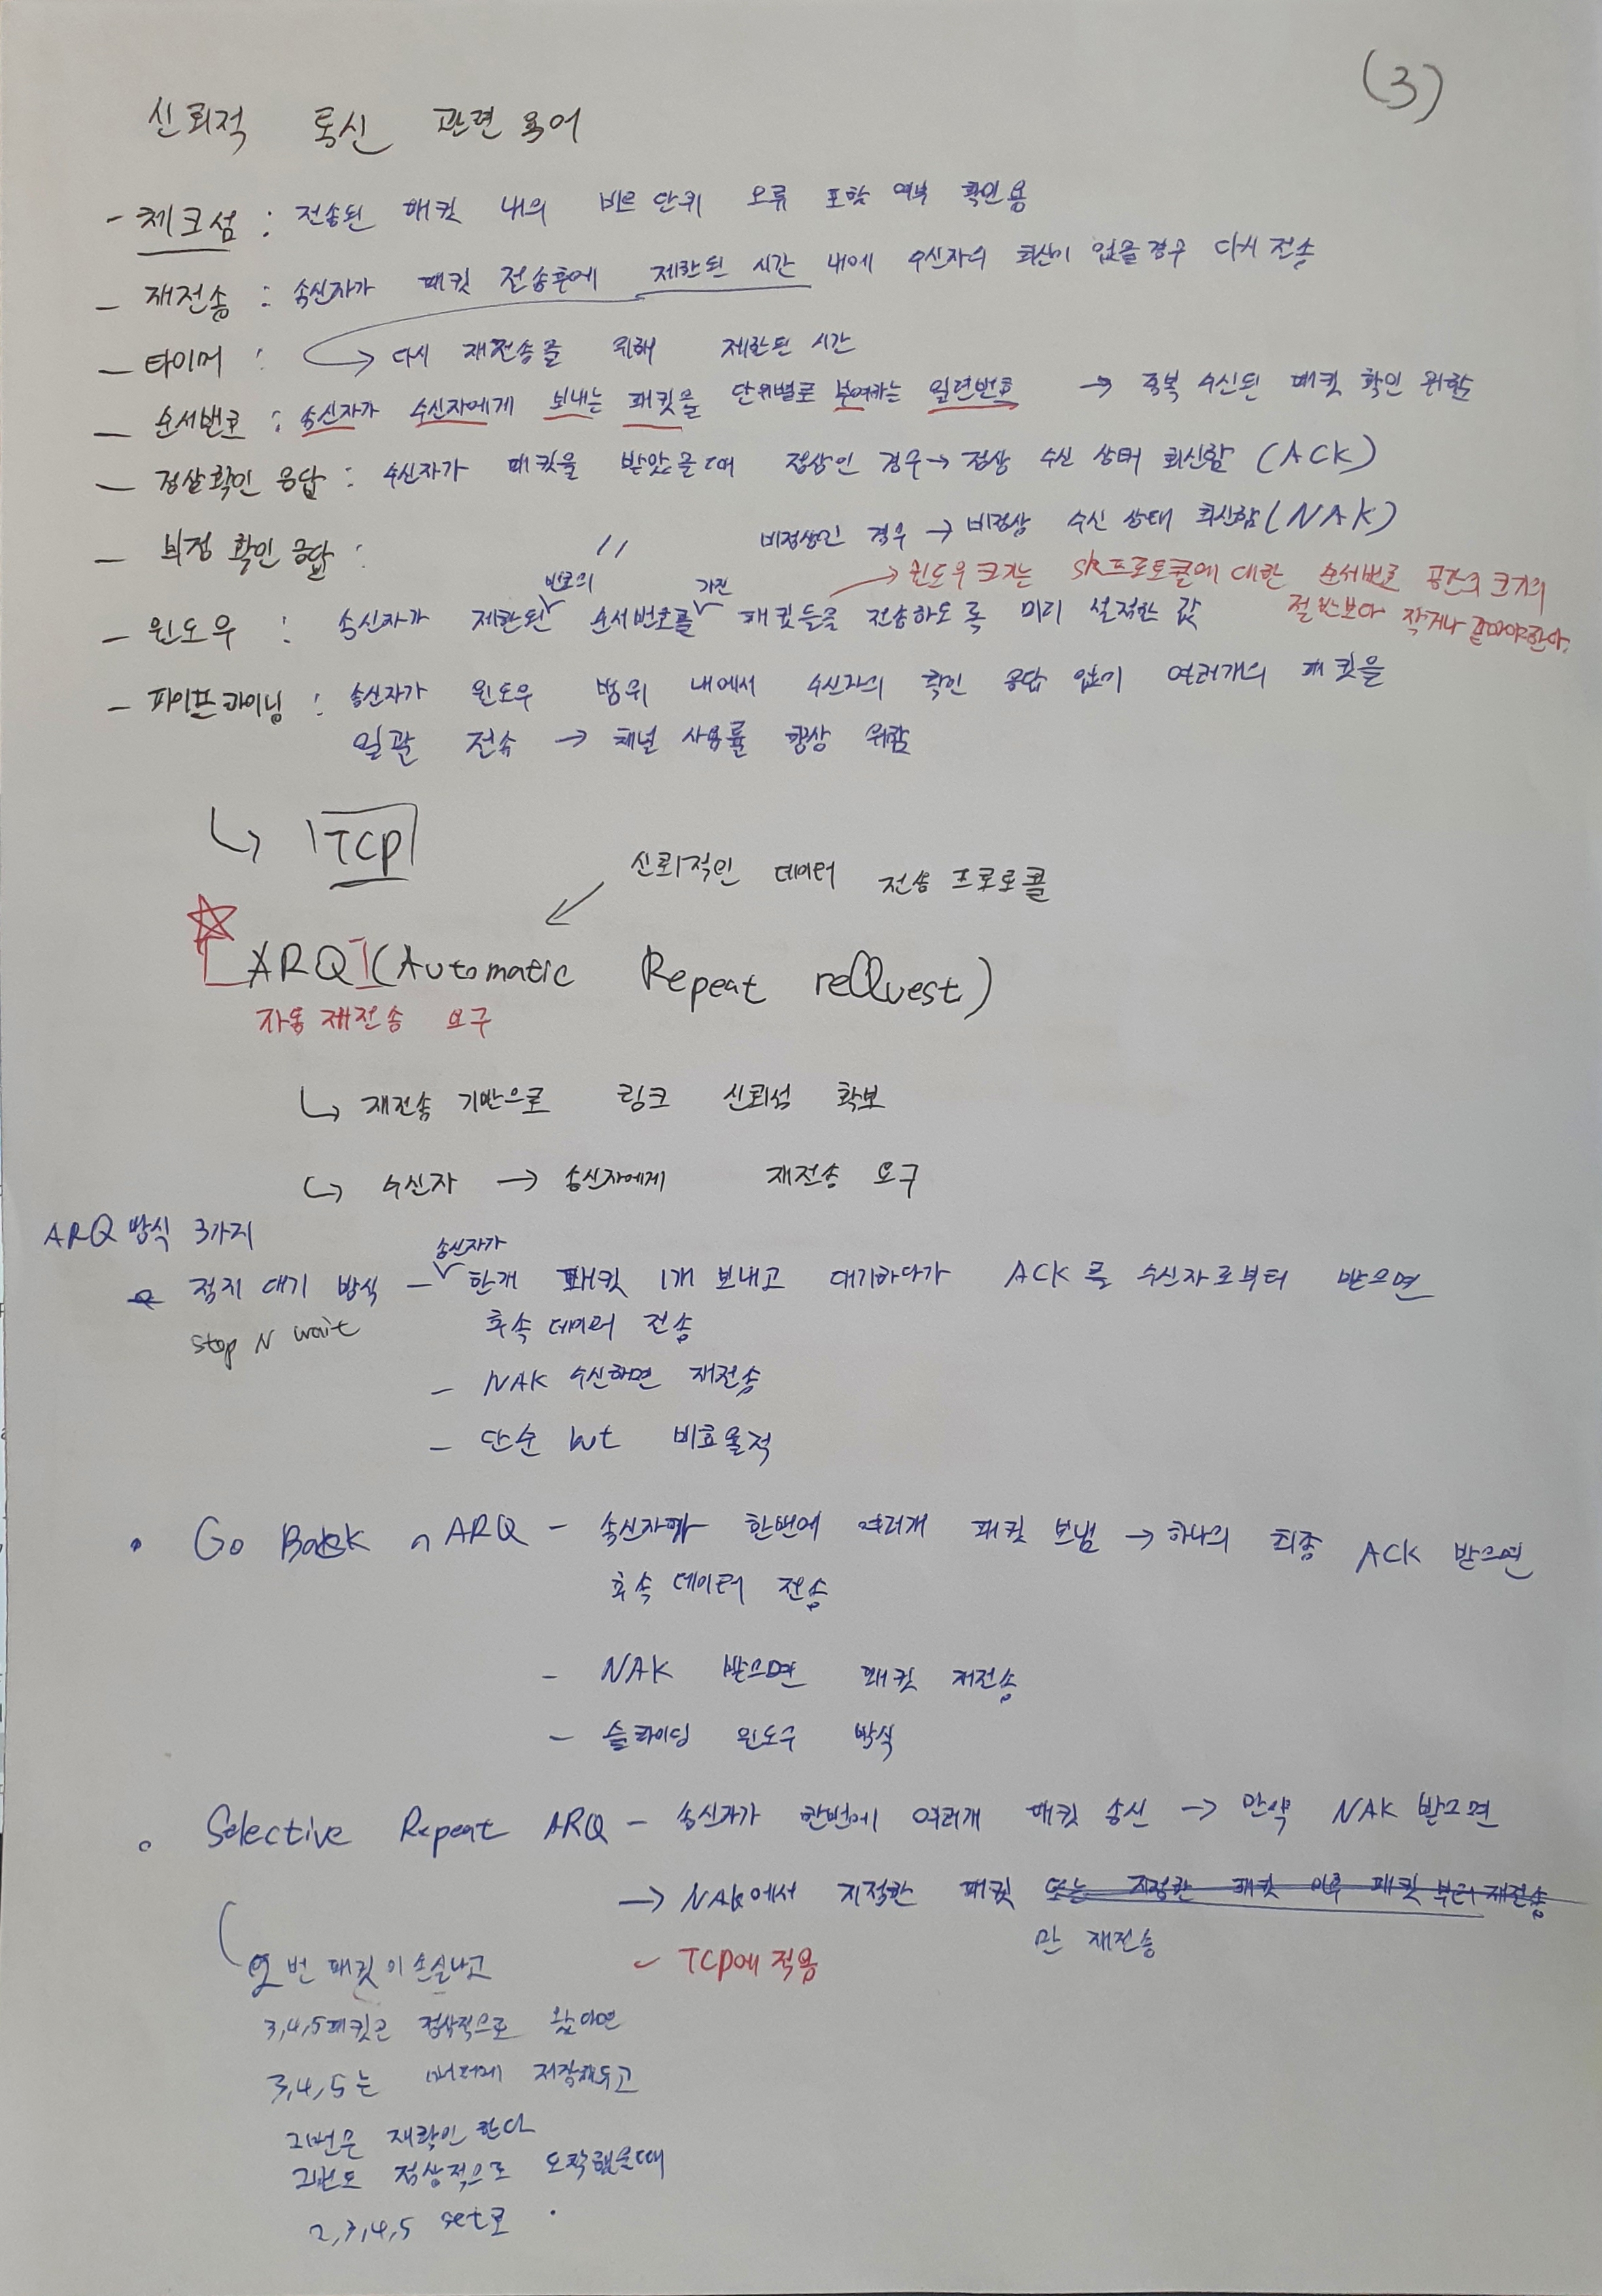 (3)
신뢰적 통신 관련 용어
- 체크섬 : 전송된 패킷 내의 비트 단위 오류 포함 여부 확인용
- 재전송 : 송신자가 패킷 전송후에 제한된 시간 내에 수신자의 회신이 없을경우 다시 전송
- 타이머 : → 다시 재전송을 위해 제한된 시간
- 순서번호 : 송신자가 수신자에게 보내는 패킷을 단위별로 부여하는 일련번호 → 중복 수신된 패킷 확인 위함
- 정상확인 응답 : 수신자가 패킷을 받았을때 정상인 경우 → 정상 수신 상태 회신함 (ACK)
- 부정 확인 응답 : 〃 비정상인 경우 → 비정상 수신 상태 회신함 (NAK)
→ 윈도우 크기는 SR프로토콜에 대한 순서번호 공간의 크기의
절반보다 작거나 같아야한다.
- 윈도우 : 송신자가 제한된 번호의 순서번호를 가진 패킷들을 전송하도록 미리 설정한 값
- 파이프라이닝 : 송신자가 윈도우 범위 내에서 수신자의 확인 응답 없이 여러개의 패킷을
일괄 전송 → 채널 사용률 향상 위함
↳ TCP
신뢰적인 데이터 전송 프로토콜
ARQ (Automatic Repeat reQuest)
자동 재전송 요구
↳ 재전송 기반으로 링크 신뢰성 확보
↳ 수신자 → 송신자에게 재전송 요구
ARQ 방식 3가지
정지 대기 방식 - 송신자가 한개 패킷 1개 보내고 대기하다가 ACK를 수신자로부터 받으면
stop N wait
후속 데이터 전송
- NAK 수신하면 재전송
- 단순 but 비효율적
• Go Back n ARQ - 송신자가 한번에 여러개 패킷 보냄 → 하나의 최종 ACK 받으면
후속 데이터 전송
- NAK 받으면 패킷 재전송
- 슬라이딩 윈도우 방식
• Selective Repeat ARQ - 송신자가 한번에 여러개 패킷 송신 → 만약 NAK 받으면
→ NAK에서 지적한 패킷 또는 지정한 패킷 이후 패킷 부터 재전송
만 재전송
- TCP에 적용
2번 패킷이 손실나고
3,4,5패킷은 정상적으로 왔다면
3,4,5는 버퍼에 저장해두고
2번은 재확인 한다
2번도 정상적으로 도착했을때
2,3,4,5 set로